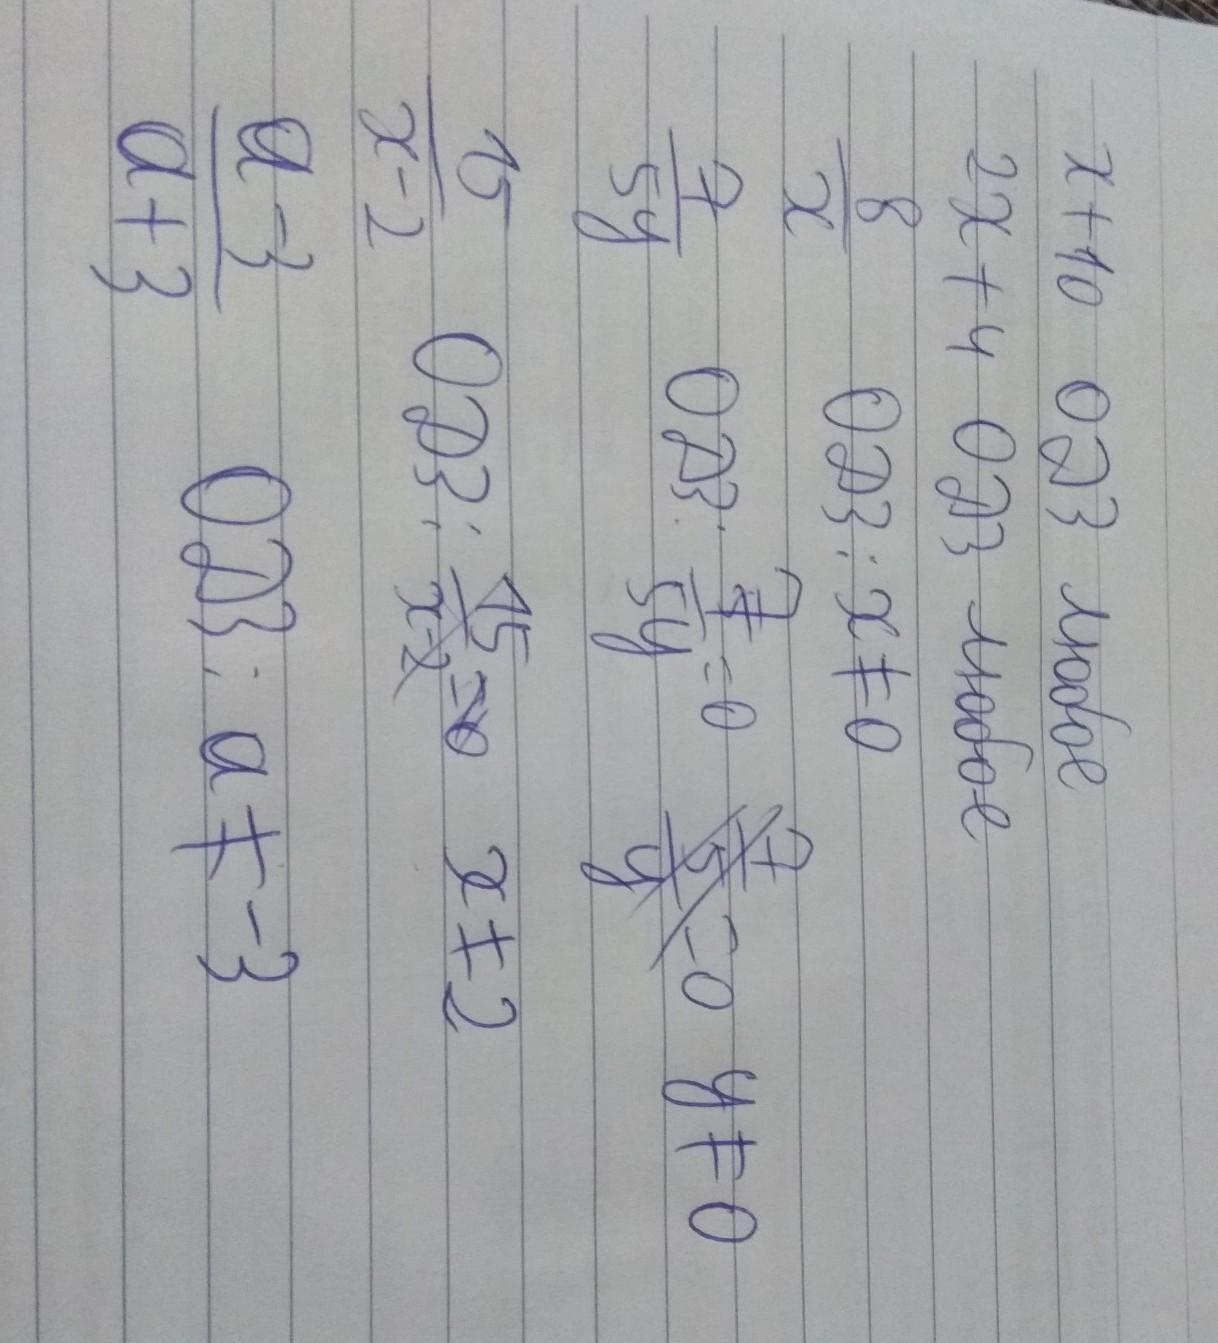 x+10 ОДЗ любое
2x+4 ОДЗ любое
8/x ОДЗ: x≠0
7/5y ОДЗ: 7/5y=0 y≠0
15/x-2 ОДЗ: x≠2
a-3/a+3 ОДЗ: a≠-3